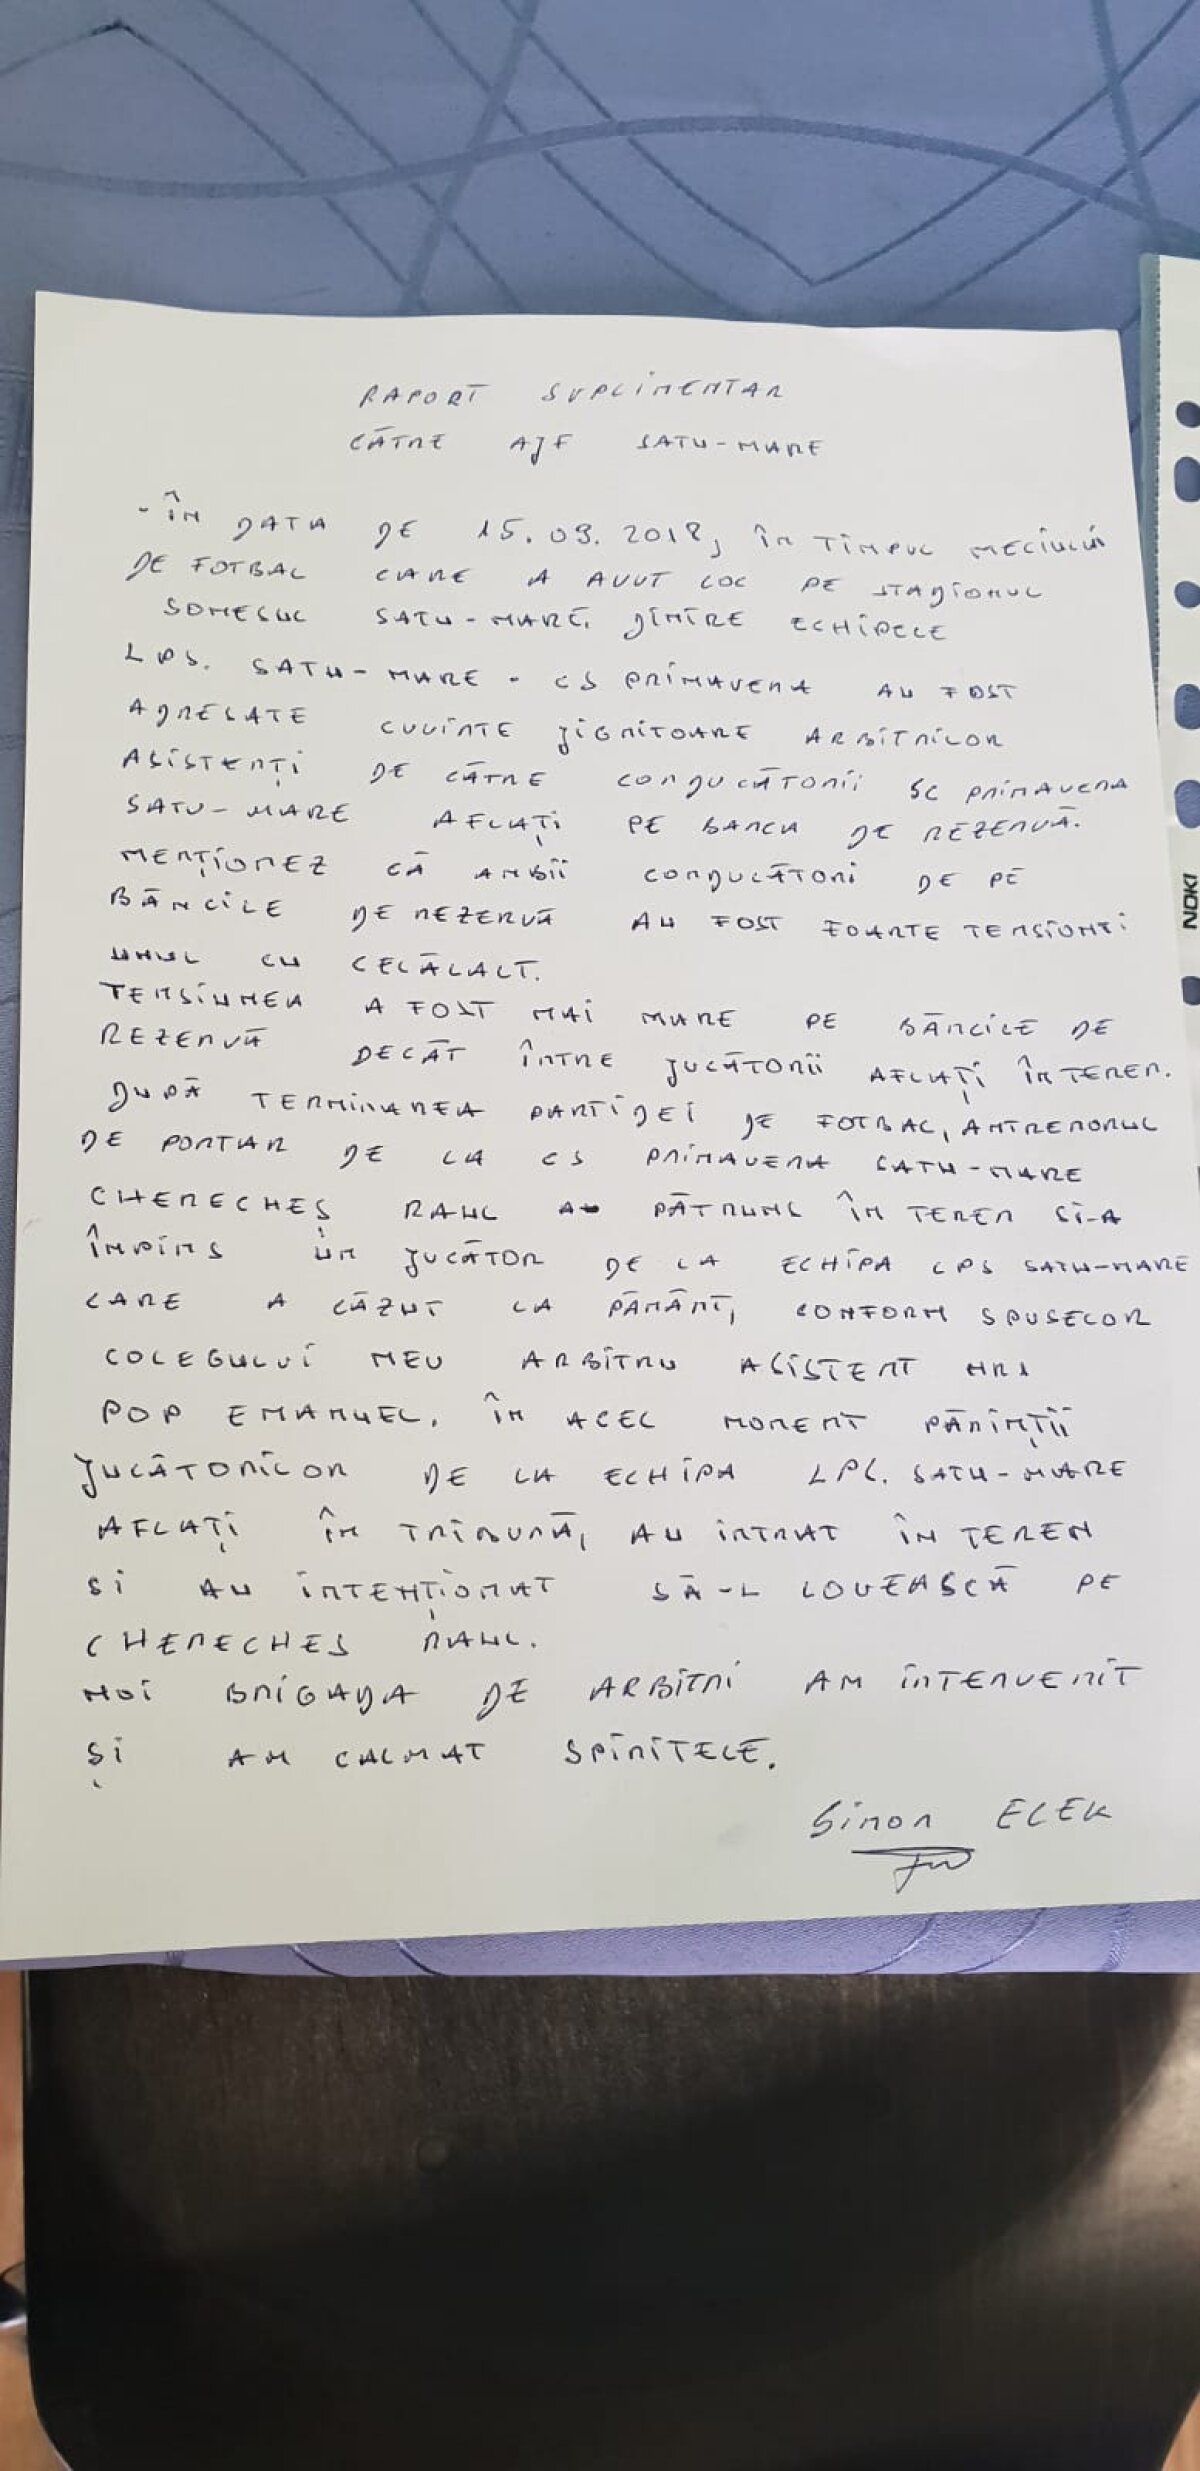 RAPORT SUPLIMENTAR
CĂTRE AJF SATU-MARE
- ÎN DATA DE 15.09.2018, ÎN TIMPUL MECIULUI
DE FOTBAL CARE A AVUT LOC PE STADIONUL
SOMESUL SATU-MARE, DINTRE ECHIPELE
LPS. SATU-MARE - CS PRIMAVERA AU FOST
ADRESATE CUVINTE JIGNITOARE ARBITRILOR
ASISTENȚI DE CĂTRE CONDUCĂTORII SC PRIMAVERA
SATU-MARE AFLAȚI PE BANCA DE REZERVĂ.
MENȚIONEZ CĂ AMBII CONDUCĂTORI DE PE
BĂNCILE DE REZERVĂ AU FOST FOARTE TENSIONȚI
UNUL CU CELĂLALT.
TENSIUNEA A FOST MAI MARE PE BĂNCILE DE
REZERVĂ DECÂT ÎNTRE JUCĂTORII AFLAȚI ÎN TEREN.
DUPĂ TERMINAREA PARTIDEI DE FOTBAL, ANTRENORUL
DE PORTAR DE LA CS PRIMAVERA SATU-MARE
CHERECHEȘ RAUL A PĂTRUNS ÎN TEREN SI-A
ÎMPINS UN JUCĂTOR DE LA ECHIPA LPS SATU-MARE
CARE A CĂZUT LA PĂMÂNT, CONFORM SPUSELOR
COLEGULUI MEU ARBITRU ASISTENT NR1
POP EMANUEL. ÎN ACEL MOMENT PĂRINȚII
JUCĂTORILOR DE LA ECHIPA LPS. SATU-MARE
AFLAȚI ÎN TRIBUNĂ, AU INTRAT ÎN TEREN
SI AU INTENȚIONAT SĂ-L LOVEASCĂ PE
CHERECHES RAUL.
NOI BRIGADA DE ARBITRI AM INTERVENIT
ȘI AM CALMAT SPIRITELE.
Simon ELEK
NOKI